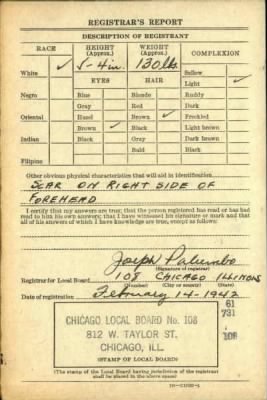 REGISTRAR'S REPORT
DESCRIPTION OF REGISTRANT
RACE HEIGHT (Approx.) WEIGHT (Approx.) COMPLEXION
5-4 in. 130 lbs.
White ✓ EYES HAIR Sallow
Light ✓
Negro Blue Blonde Ruddy
Gray Red Dark
Oriental Hazel Brown ✓ Freckled
Brown ✓ Black Light brown
Indian Black Gray Dark brown
Bald Black
Filipino
Other obvious physical characteristics that will aid in identification
SCAR ON RIGHT SIDE OF
FOREHEAD
I certify that my answers are true; that the person registered has read or has had
read to him his own answers; that I have witnessed his signature or mark and that
all of his answers of which I have knowledge are true, except as follows:
Joseph Palumbo
(Signature of registrar)
Registrar for Local Board 108 CHICAGO ILLINOIS
(Number) (City or county) (State)
Date of registration February 14-1942
61
731
108
CHICAGO LOCAL BOARD No. 108
812 W. TAYLOR ST.
CHICAGO, ILL.
(STAMP OF LOCAL BOARD)
(The stamp of the Local Board having jurisdiction of the registrant
shall be placed in the above space)